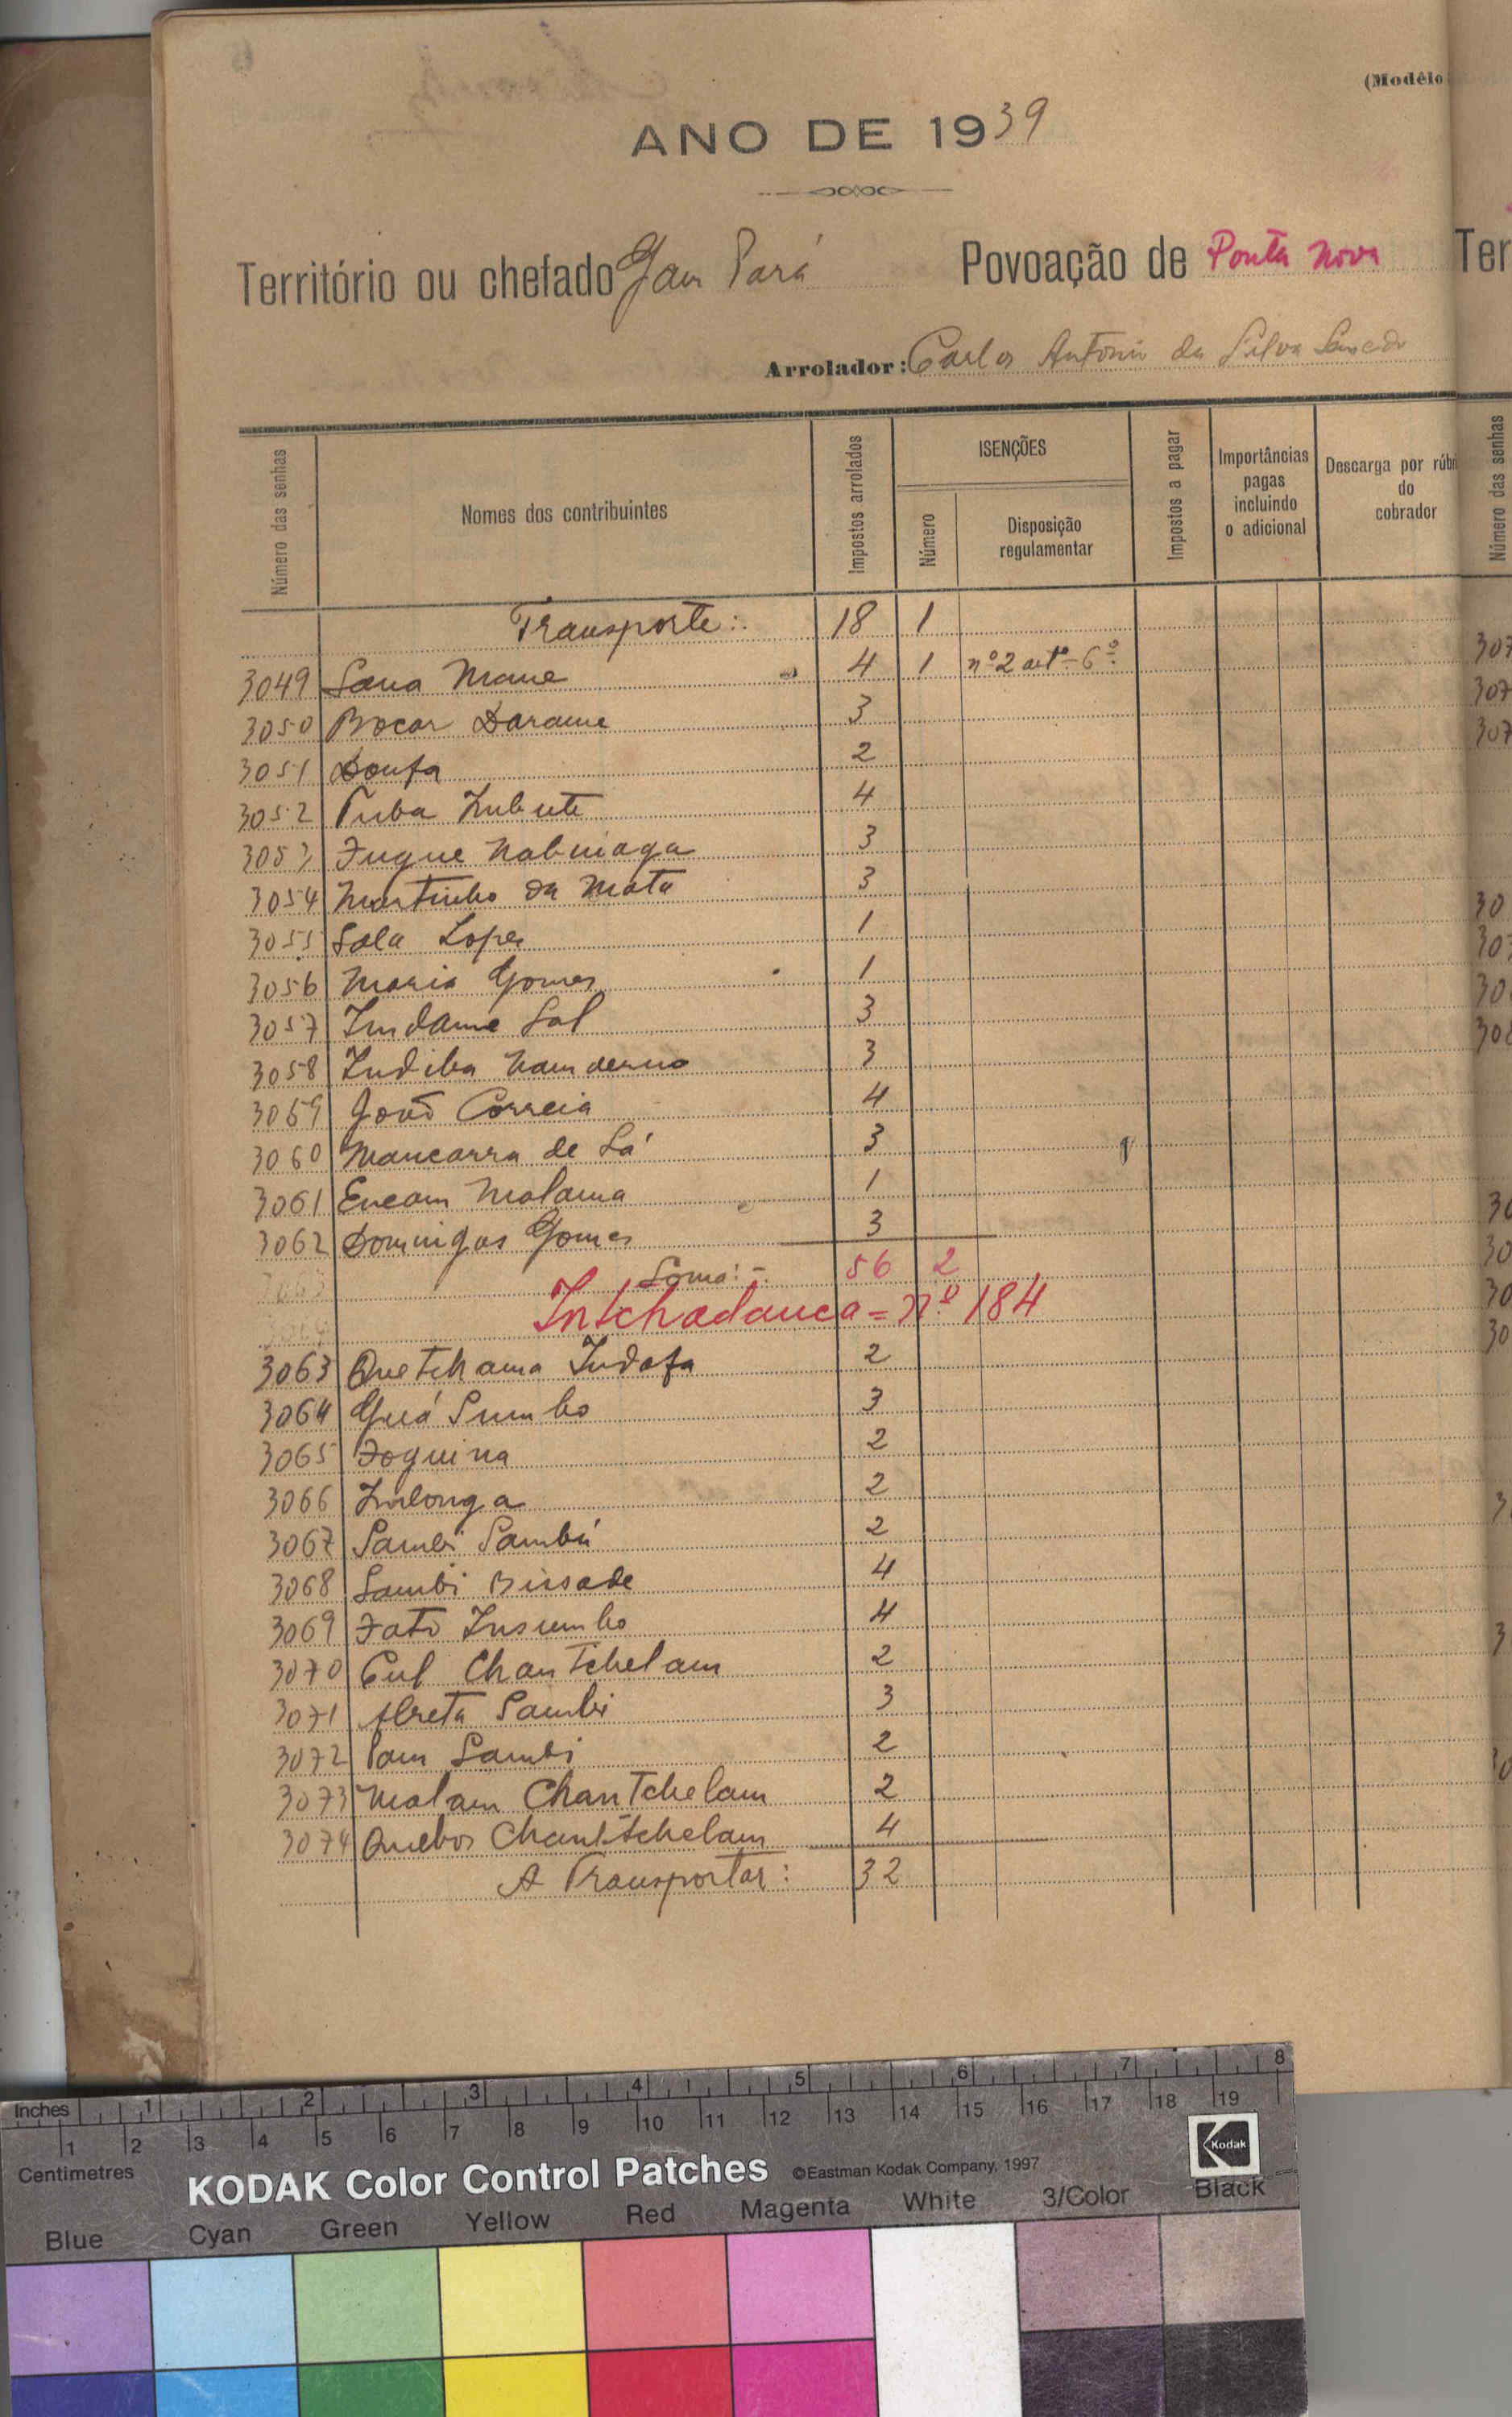 (Modêlo
ANO DE 1939
Território ou chefado Gam Pará
Povoação de Ponta Nova
Ter
Arrolador: Carlos Antonio da Silva
Número das senhas
Nomes dos contribuintes
Impostos arrolados
ISENÇÕES
Número
Disposição regulamentar
Impostos a pagar
Importâncias pagas incluindo o adicional
Descarga por rúbri do cobrador
Número das senhas
Transporte: 18 1
3049 Sana Mane 4 1 nº2 artº-6º
3050 Bocar Darame 3
3051 Doufa 2
3052 Tuba Imbute 4
3053 Fugue Nabuiaga 3
3054 Martinho da Mata 3
3055 Sala Lopes 1
3056 Maria Gomes 1
3057 Indame Sal 3
3058 Indiba Namderno 3
3059 João Correia 4
3060 Mancarra de Sá 3
3061 Encam Malama 1
3062 Domingos Gomes 3
Soma:- 56 2
Intchadanca = nº 184
3063 Quetchama Indafa 2
3064 Guá Sumbo 3
3065 Foquina 2
3066 Inlonga 2
3067 Sambi Sambú 2
3068 Sambi Bissade 4
3069 Fato Insumbo 4
3070 Cul Chantchelam 2
3071 Abreta Sambi 3
3072 Pam Sambi 2
3073 Malam Chantchelam 2
3074 Quebos Chantchelam 4
A Transportar: 32
Inches 1 2 3 4 5 6 7 8
1 2 3 4 5 6 7 8 9 10 11 12 13 14 15 16 17 18 19
Centimetres
KODAK Color Control Patches ©Eastman Kodak Company, 1997
Kodak
Blue Cyan Green Yellow Red Magenta White 3/Color Black